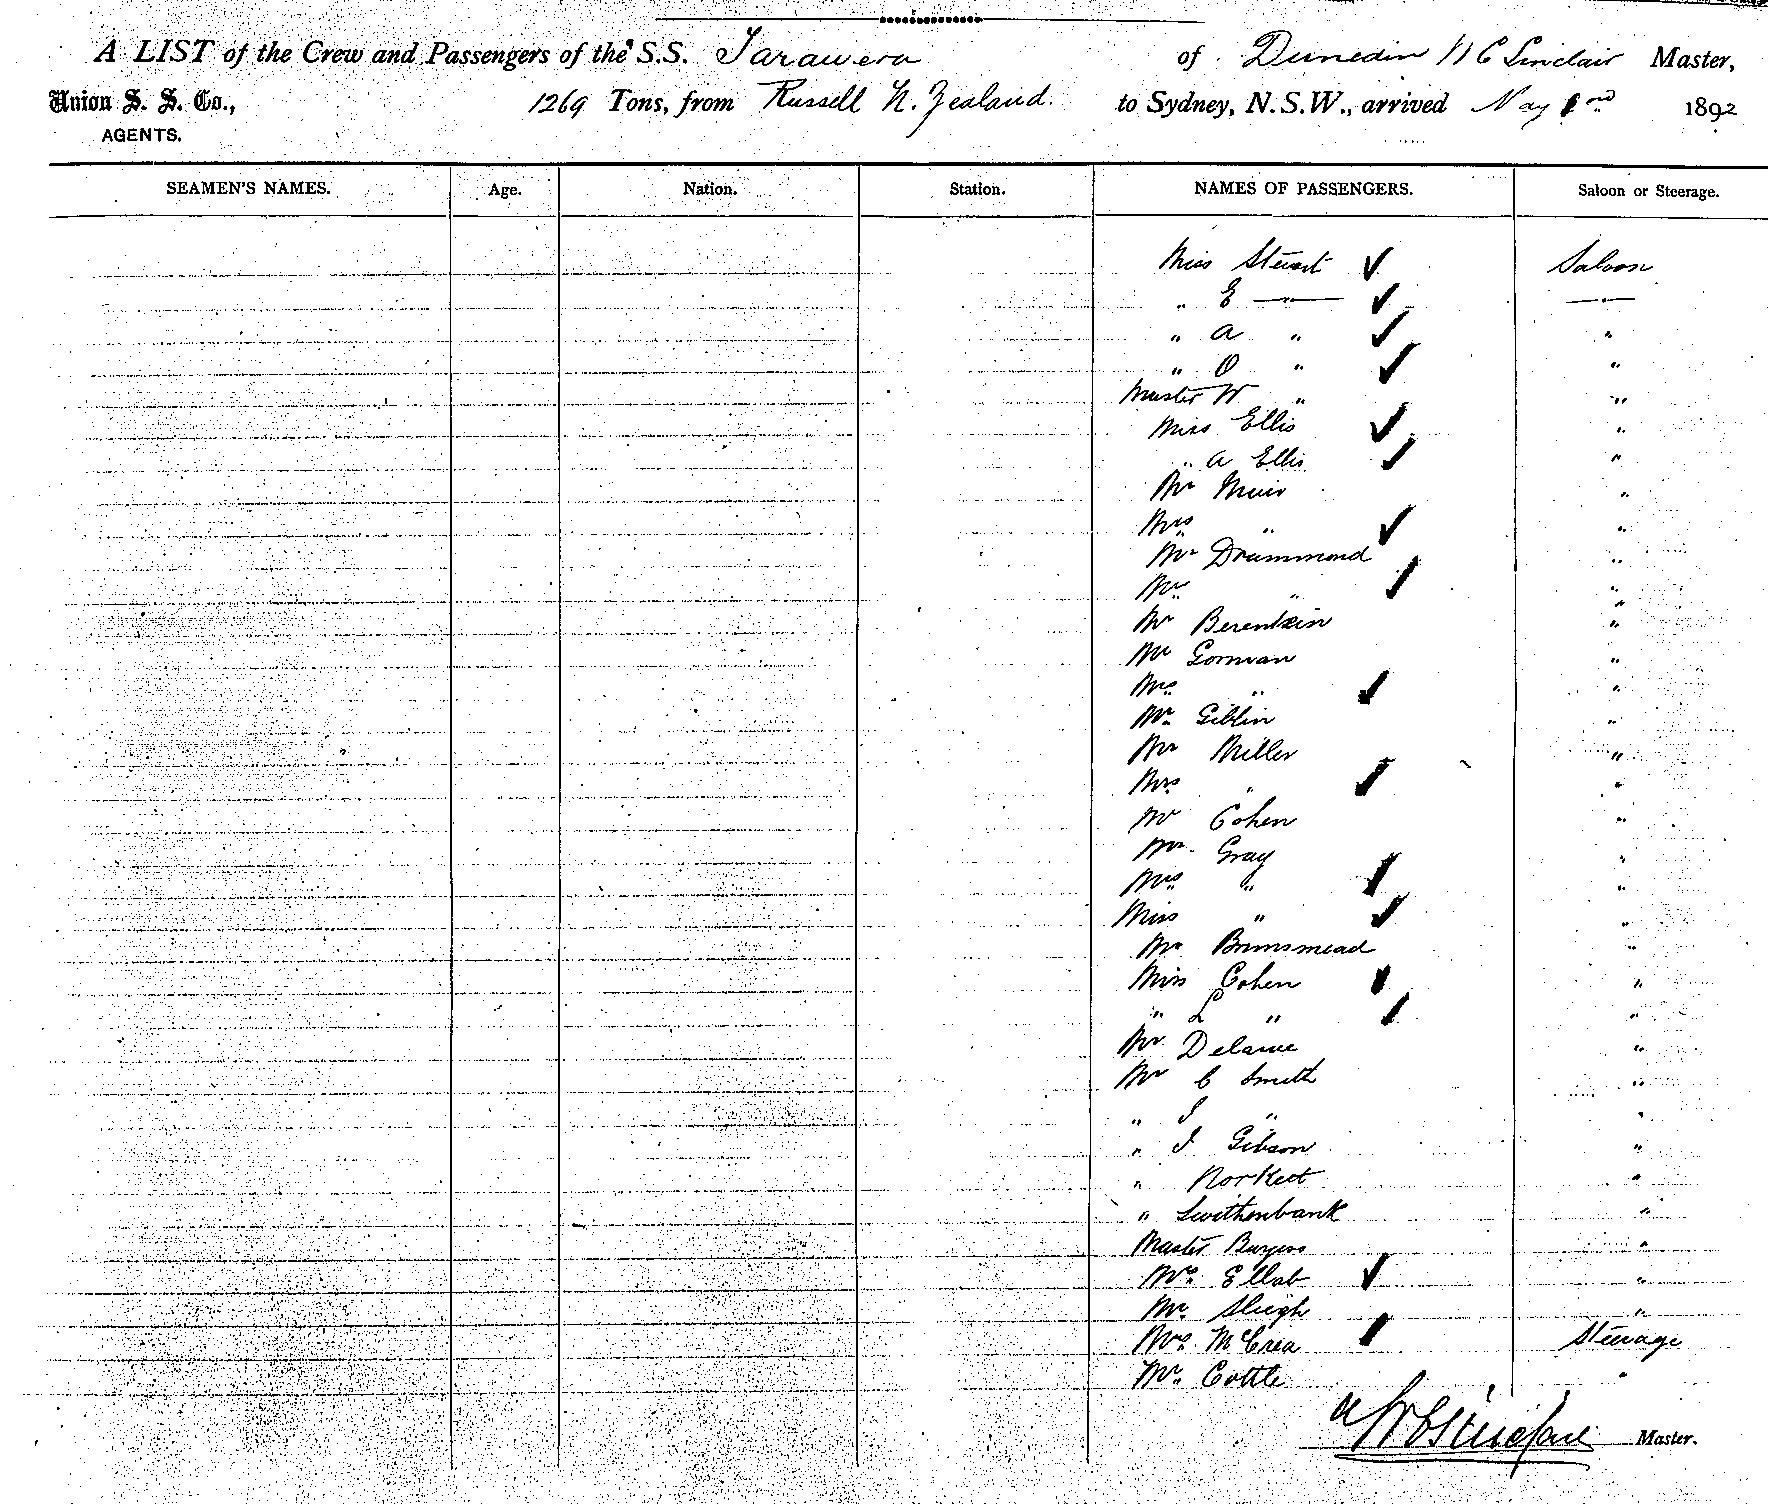 A LIST of the Crew and Passengers of the S.S. Tarawera of Dunedin W C Sinclair Master,
Union S. S. Co., 1269 Tons, from Russell N. Zealand. to Sydney, N.S.W., arrived May 1892
AGENTS.
SEAMEN'S NAMES. Age. Nation. Station. NAMES OF PASSENGERS. Saloon or Steerage.
Miss Stuart ✓ Saloon
" E — " — ✓ — " —
" A " ✓ "
" O " ✓ "
Master W " "
Miss Ellis ✓ "
" A Ellis ✓ "
Mr Muir "
Mrs " ✓ "
Mr Drummond "
" ✓ "
Mr Berentzin "
Mr Gorman "
Mrs " ✓ "
Mr Giblin "
Mr Miller "
Mrs " ✓ "
Mr Cohen "
Mr. Gray "
Mrs " ✓ "
Miss " ✓ "
Mr Brinsmead "
Miss Cohen ✓ "
" L " ✓ "
Mr "
Mr C Smith "
" J " "
" J Gibson "
" "
" Swithenbank "
Master Burgess "
Mrs ✓ "
Mr Sleigh "
Mrs McCrea ✓ Steerage
Mr. Cottle "
W C Sinclair Master.